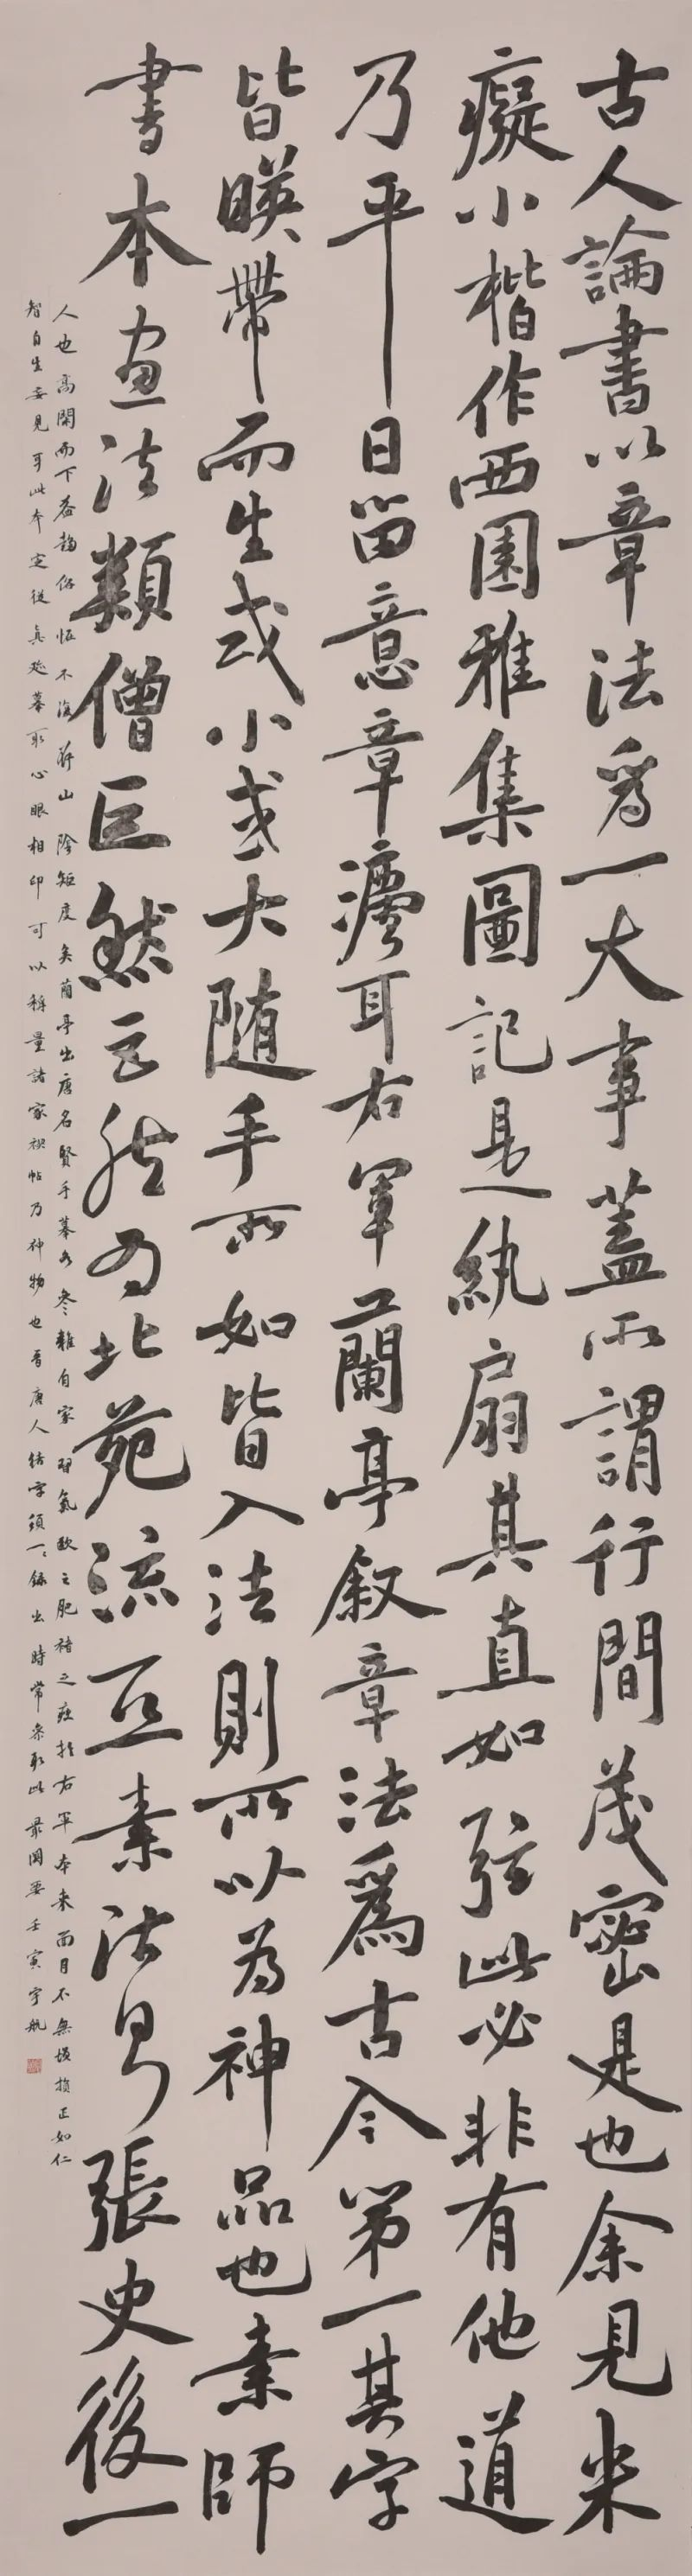 古人論書以章法爲一大事蓋所謂行間茂密是也余見米
癡小楷作西園雅集圖記是紈扇其直如弦此必非有他道
乃平日留意章灋耳右軍蘭亭叙章法爲古今第一其字
皆暎帶而生或小或大随手所如皆入法則所以為神品也素師
書本畫法類僧巨然巨然为北苑流亞素法即張史後一
人也高閑而下益趨俗怪不復存山陰矩度矣蘭亭出唐名賢手摹各參雜自家習氣歐之肥褚之瘦於右軍本来面目不無增損正如仁
智自生妄見耳此本定從真跡摹取心眼相印可以稱量諸家禊帖乃神物也晉唐人結字須一一錄出時常參取此最關要壬寅宇航